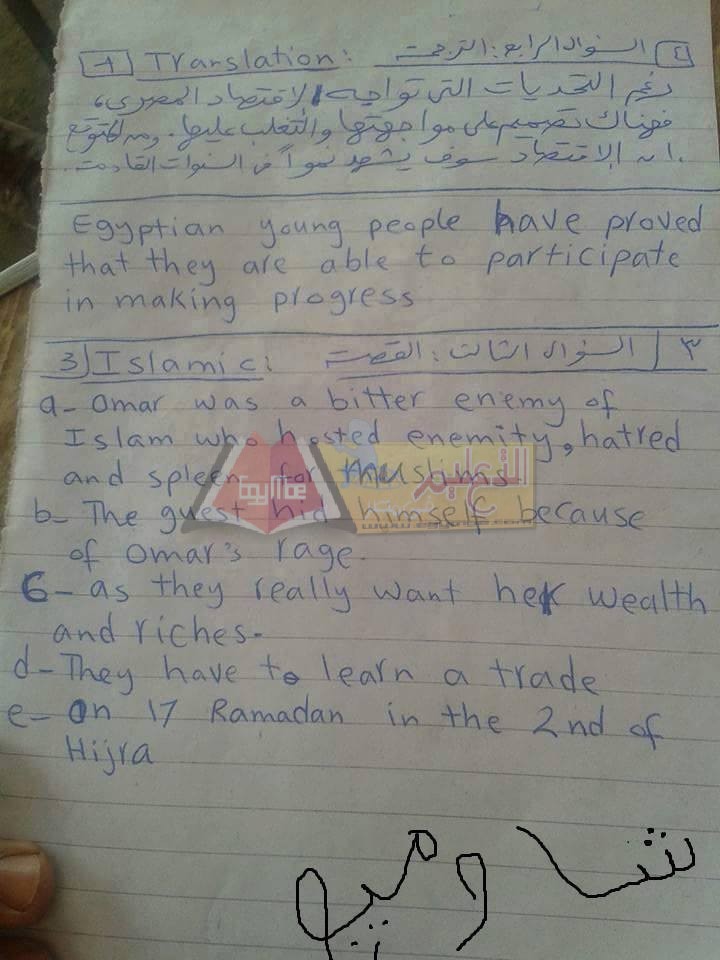 ٤ السؤال الرابع: الترجمة
1 Translation:
رغم التحديات التى تواجه الإقتصاد المصرى،
فهناك تصميم على مواجهتها والتغلب عليها. ومن المتوقع
ان الإقتصاد سوف يشهد نمواً فى السنوات القادمة.
Egyptian young people have proved
that they are able to participate
in making progress
3) Islamic: ٣ السؤال الثالث: القصة
a- Omar was a bitter enemy of
Islam who hosted enemity, hatred
and spleen for muslims
b- The guest hid himself because
of Omar's rage.
6- as they really want her wealth
and riches-
d- They have to learn a trade
e- On 17 Ramadan in the 2nd of
Hijra
شاومينج